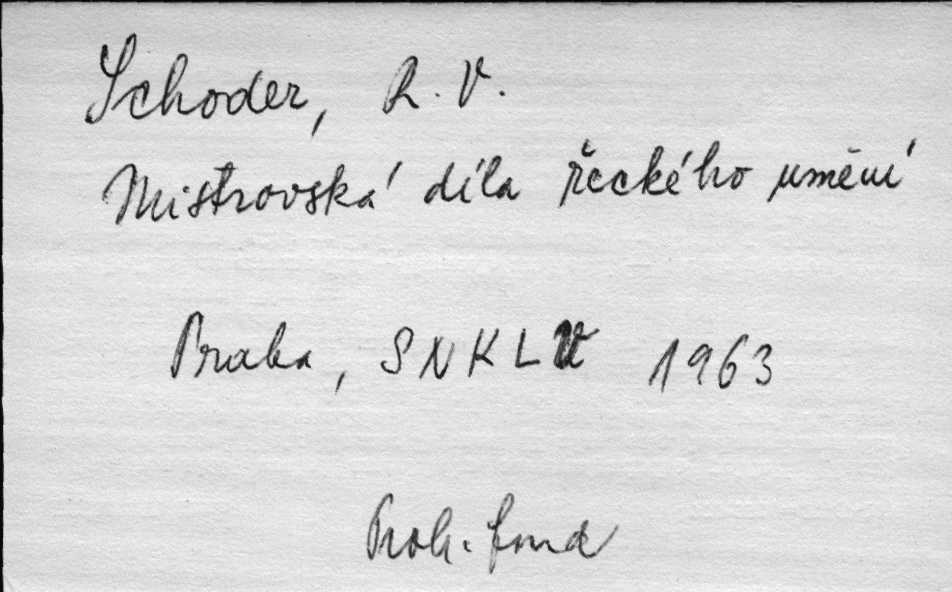 Schoder, R. V.
Mistrovská díla řeckého umění
Praha, SNKLU 1963
Proh. fond